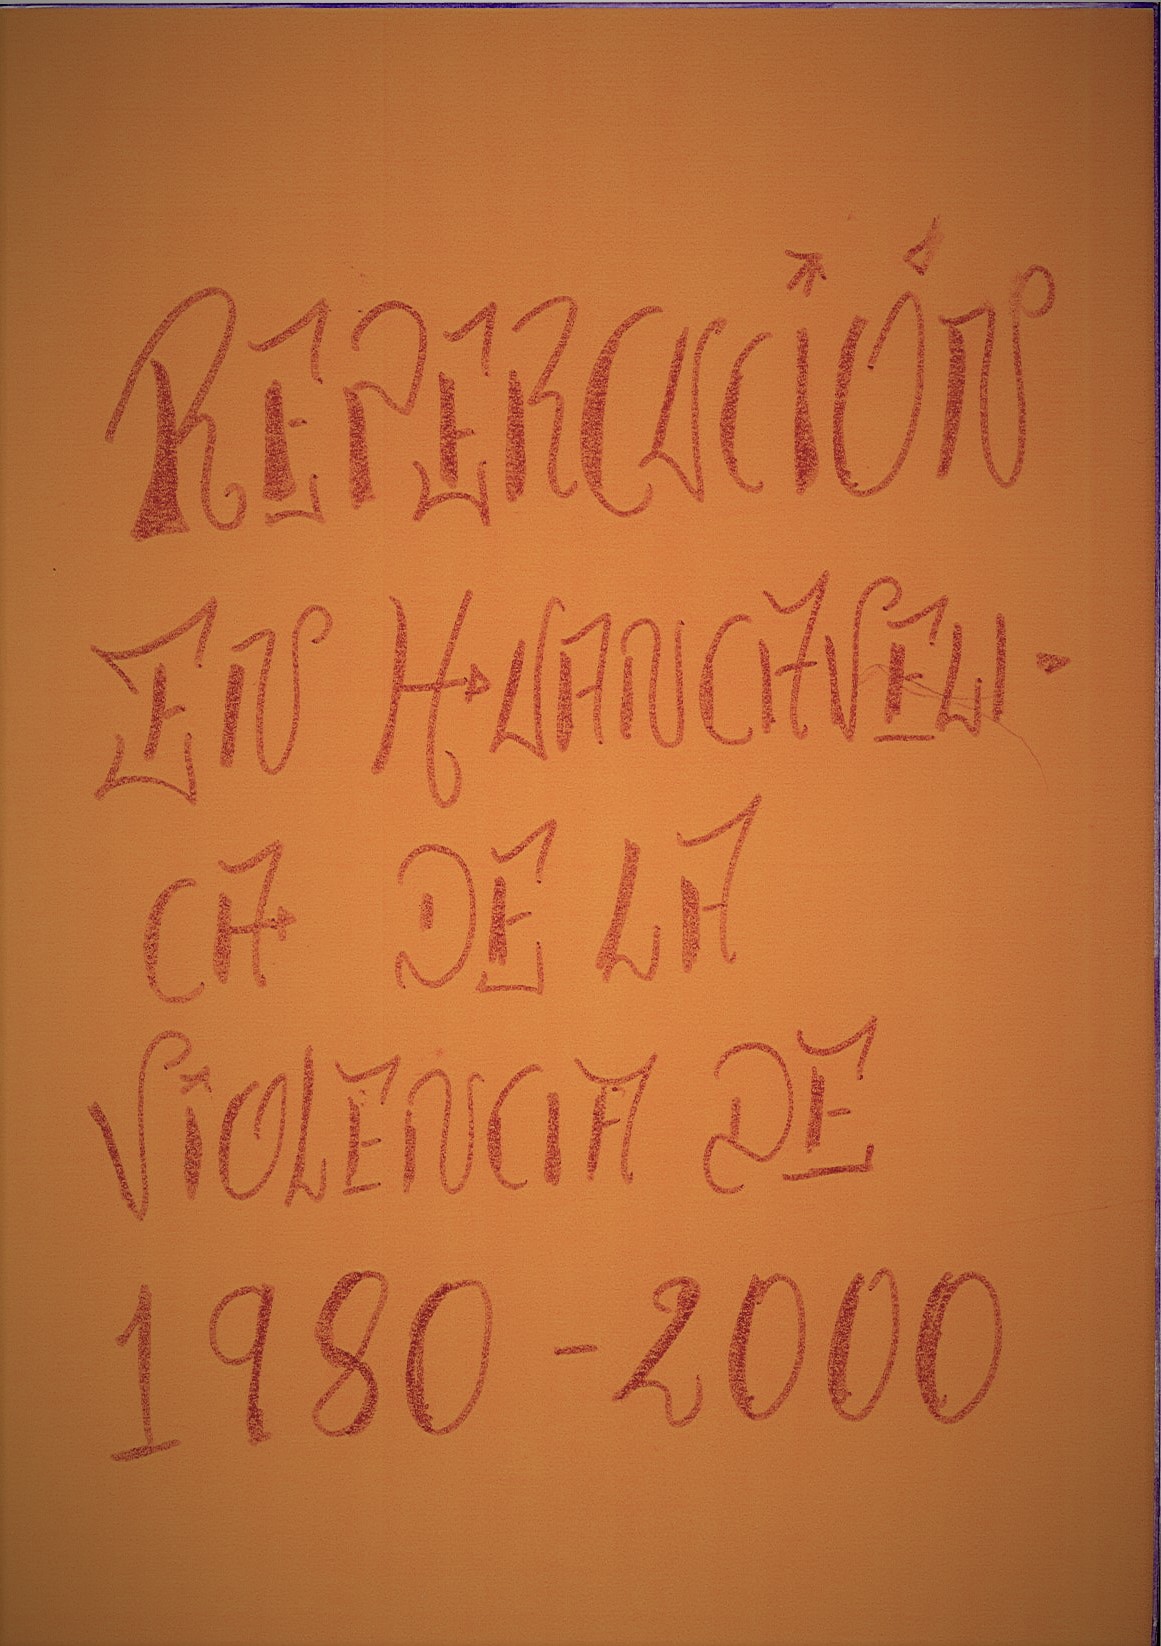 REPERCUCIÓN
EN HUANCAVELI-
CA DE LA
VIOLENCIA DE
1980 - 2000